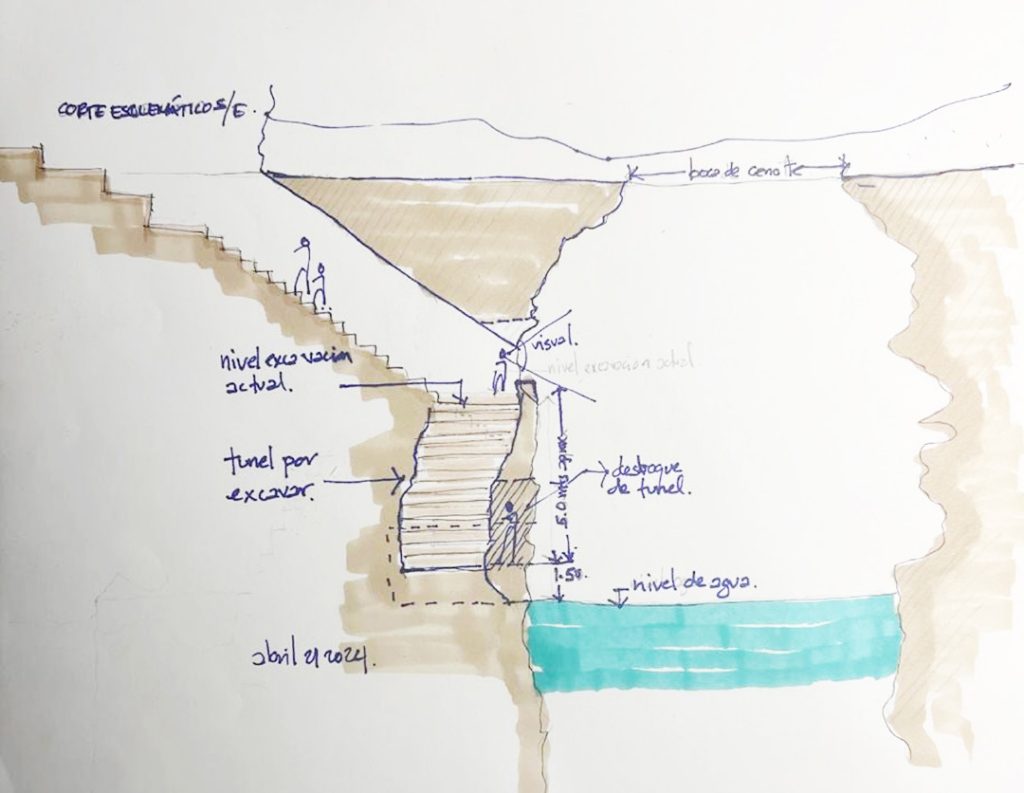 CORTE ESQUEMÁTICO S/E.
boca de cenote
visual.
nivel excavacion actual
nivel excavacion
actual.
tunel por
excavar.
destroque
de tunel.
5.0
1.50.
nivel de agua.
abril 21 2024.